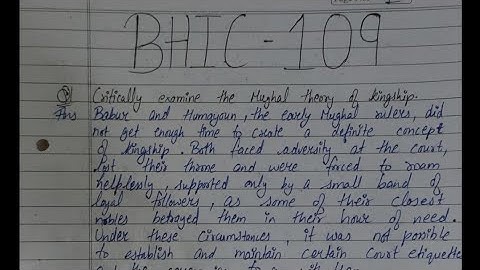 BHIC-109
Q Critically examine the Mughal theory of kingship.
Ans Babur and Humayoun, the early Mughal rulers, did
not get enough time to create a definite concept
of kingship. Both faced adversity at the court,
lost their throne and were forced to roam
helplessly, supported only by a small band of
loyal followers, as some of their closest
nobles betrayed them in their hour of need.
Under these circumstances, it was not possible
to establish and maintain certain Court etiquette